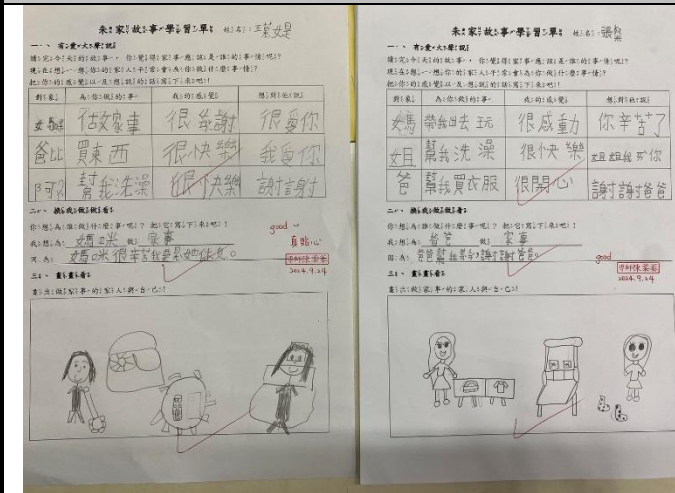 朱家故事學習單 姓名：
一、有愛大聲說
讀完今天的故事，你覺得家事應該是誰的事情呢？
現在想一想你的家人平常會為你做什麼事情？
把你的感覺以及想說的話寫下來吧！
對象 為你做的事 我的感覺 想對他說
做家事 很感謝 很愛你
爸比 買東西 很快樂 我愛你
幫我洗澡 很快樂 謝謝
二、換我做做看
你想為誰做什麼事呢？把它寫下來吧！
我想為 媽咪 做 家事
因為 媽咪很辛苦我想
good
真貼心
導師陳
2024.9.24
三、畫畫看
畫出做家事的家人與自己
朱家故事學習單 姓名：張
一、有愛大聲說
讀完今天的故事，你覺得家事應該是誰的事情呢？
現在想一想你的家人平常會為你做什麼事情？
把你的感覺以及想說的話寫下來吧！
對象 為你做的事 我的感覺 想對他說
媽 帶我出去玩 很感動 你辛苦了
姐 幫我洗澡 很快樂 姐姐我愛你
爸 幫我買衣服 很開心 謝謝爸爸
二、換我做做看
你想為誰做什麼事呢？把它寫下來吧！
我想為 爸爸 做 家事
因為 爸爸幫我 謝謝爸爸。
good
導師陳
2024.9.24
三、畫畫看
畫出做家事的家人與自己